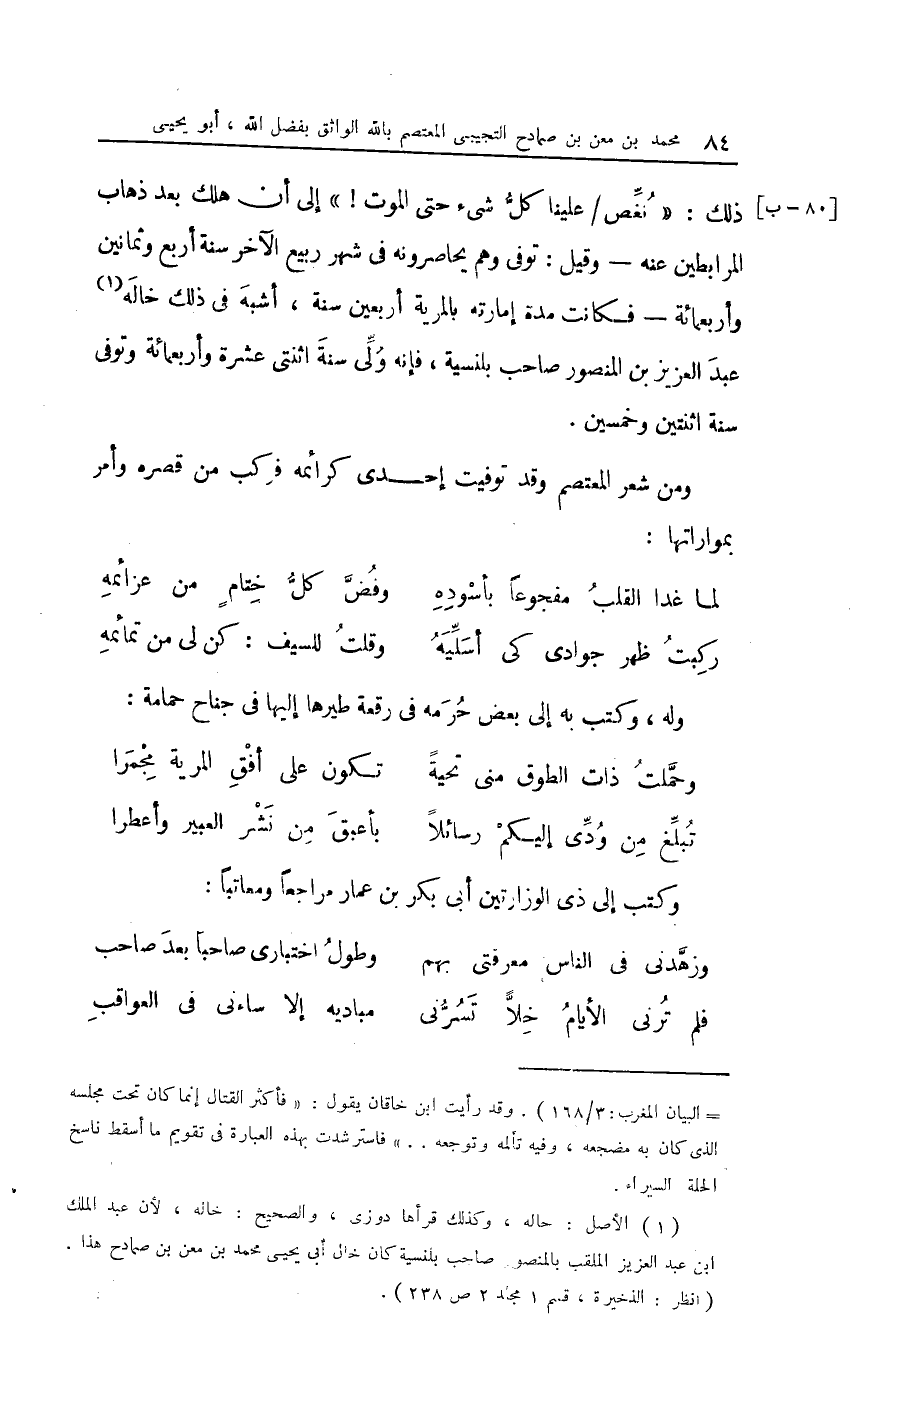 ٨٤ محمد بن معن بن صمادح التجيبى المعتصم بالله الواثق بفضل الله ، أبو يحيى
[٨٠ – ب] ذلك : « نُغِّص / علينا كلُّ شىء حتى الموت ! » إلى أن هلك بعد ذهاب
المرابطين عنه — وقيل : توفى وهم يحاصرونه فى شهر ربيع الآخر سنة أربع وثمانين
وأربعمائة — فكانت مدة إمارته بالمرية أربعين سنة ، أشبهَ فى ذلك خالَه(١)
عبدَ العزيز بن المنصور صاحب بلنسية ، فإنه وُلِّى سنةَ اثنتى عشرة وأربعمائة وتوفى
سنة اثنتين وخمسين .
ومن شعر المعتصم وقد توفيت إحدى كرائمه فركب من قصره وأمر
بمواراتها :
لما غدا القلبُ مفجوعاً بأسْودِهِ وفُضَّ كلُّ خِتامٍ من عزائمهِ
ركبتُ ظهر جوادى كى أسَلِّيَهُ وقلتُ للسيف : كن لى من تمائمهِ
وله ، وكتب به إلى بعض حُرَمه فى رقعة طيرها إليها فى جناح حمامة :
وحمَّلتُ ذات الطوق منى تحيةً تكون على أفْقِ المرية مِجْمَرا
تُبلِّغ مِن وُدِّى إليكمْ رسائلاً بأعبقَ مِن نَشْر العبير وأعطرا
وكتب إلى ذى الوزارتين أبى بكر بن عمار مراجعاً ومعاتباً :
وزهَّدنى فى الناس معرفتى بهم وطولُ اختبارى صاحباً بعدَ صاحب
فلم تُرنى الأيامُ خِلاًّ تَسُرُّنى مباديه إلا ساءنى فى العواقبِ
= البيان المغرب : ١٦٨/٣ ) . وقد رأيت ابن خاقان يقول : « فأكثر القتال إنما كان تحت مجلسه
الذى كان به مضجعه ، وفيه تألمه وتوجعه . . » فاسترشدت بهذه العبارة فى تقويم ما أسقط ناسخ
الحلة السيراء .
( ١ ) الأصل : حاله ، وكذلك قرأها دوزى ، والصحيح : خاله ، لأن عبد الملك
ابن عبد العزيز الملقب بالمنصور صاحب بلنسية كان خال أبي يحيى محمد بن معن بن صمادح هذا .
( انظر : الذخيرة ، قسم ١ مجلد ٢ ص ٢٣٨ ) .